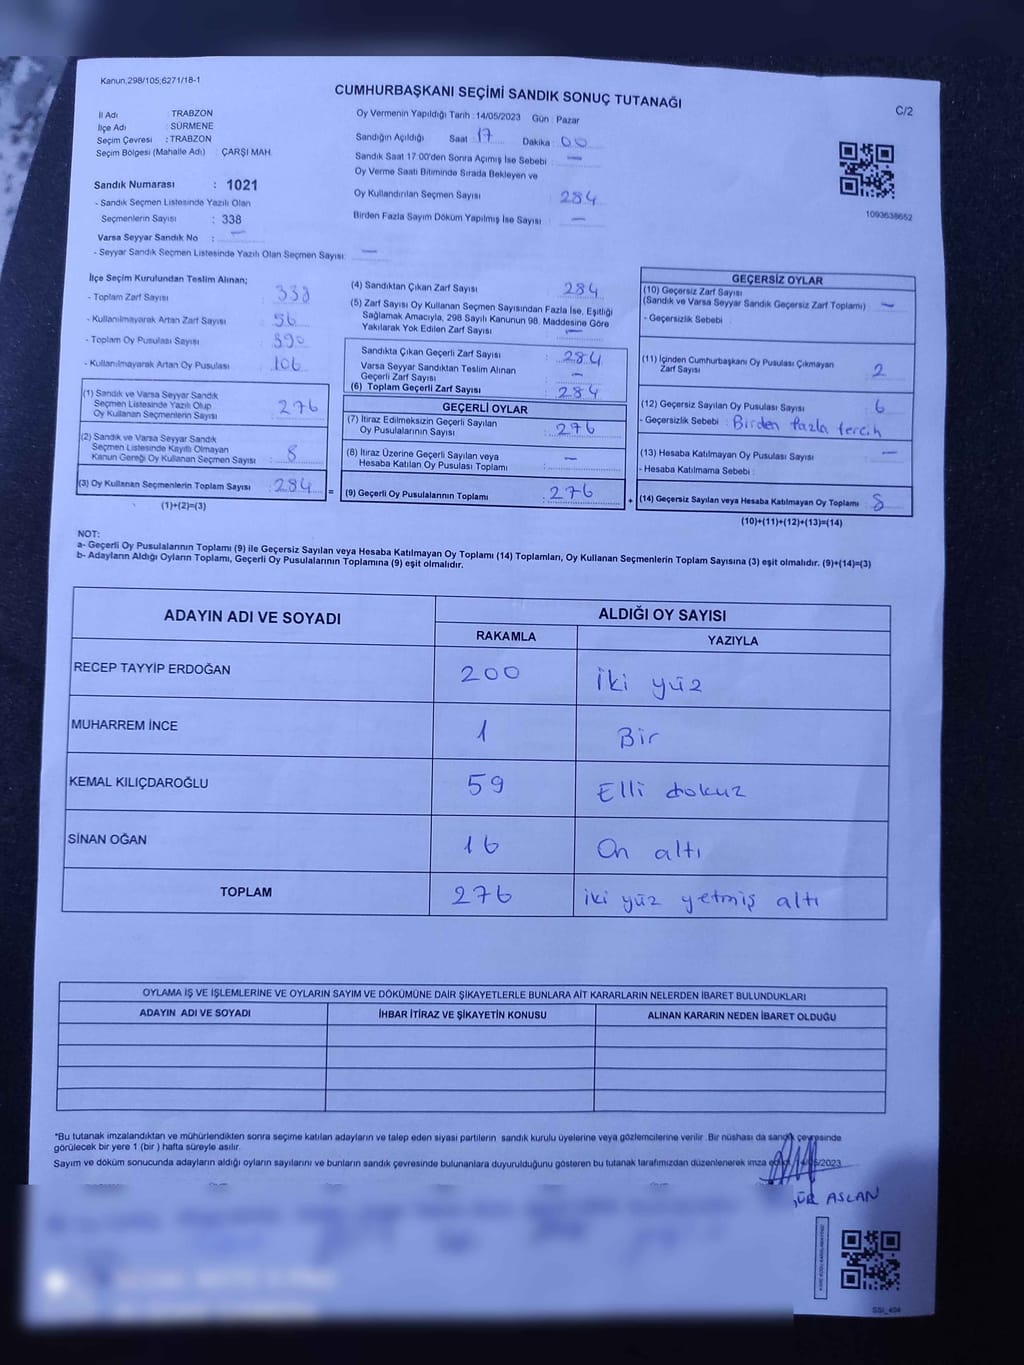 Kanun,298/105,6271/18-1
CUMHURBAŞKANI SEÇİMİ SANDIK SONUÇ TUTANAĞI
C/2
İl Adı : TRABZON
İlçe Adı : SÜRMENE
Seçim Çevresi : TRABZON
Seçim Bölgesi (Mahalle Adı) : ÇARŞI MAH.
Sandık Numarası : 1021
- Sandık Seçmen Listesinde Yazılı Olan
Seçmenlerin Sayısı : 338
Varsa Seyyar Sandık No : —
- Seyyar Sandık Seçmen Listesinde Yazılı Olan Seçmen Sayısı: —
Oy Vermenin Yapıldığı Tarih : 14/05/2023 Gün : Pazar
Sandığın Açıldığı Saat : 17 Dakika : 00
Sandık Saat 17:00'den Sonra Açımış İse Sebebi : —
Oy Verme Saati Bitiminde Sırada Bekleyen ve
Oy Kullandırılan Seçmen Sayısı : 284
Birden Fazla Sayım Döküm Yapılmış İse Sayısı : —
1093638652
İlçe Seçim Kurulundan Teslim Alınan;
- Toplam Zarf Sayısı : 338
- Kullanılmayarak Artan Zarf Sayısı : 56
- Toplam Oy Pusulası Sayısı : 390
- Kullanılmayarak Artan Oy Pusulası : 106
(1) Sandık ve Varsa Seyyar Sandık
Seçmen Listesinde Yazılı Olup
Oy Kullanan Seçmenlerin Sayısı : 276
(2) Sandık ve Varsa Seyyar Sandık
Seçmen Listesinde Kayıtlı Olmayan
Kanun Gereği Oy Kullanan Seçmen Sayısı : 8
(3) Oy Kullanan Seçmenlerin Toplam Sayısı : 284
(1)+(2)=(3)
(4) Sandıktan Çıkan Zarf Sayısı : 284
(5) Zarf Sayısı Oy Kullanan Seçmen Sayısından Fazla İse, Eşitliği
Sağlamak Amacıyla, 298 Sayılı Kanunun 98. Maddesine Göre
Yakılarak Yok Edilen Zarf Sayısı : —
Sandıkta Çıkan Geçerli Zarf Sayısı : 284
Varsa Seyyar Sandıktan Teslim Alınan
Geçerli Zarf Sayısı : —
(6) Toplam Geçerli Zarf Sayısı : 284
GEÇERLİ OYLAR
(7) İtiraz Edilmeksizin Geçerli Sayılan
Oy Pusulalarının Sayısı : 276
(8) İtiraz Üzerine Geçerli Sayılan veya
Hesaba Katılan Oy Pusulası Toplamı : —
= (9) Geçerli Oy Pusulalarının Toplamı : 276
GEÇERSİZ OYLAR
(10) Geçersiz Zarf Sayısı
(Sandık ve Varsa Seyyar Sandık Geçersiz Zarf Toplamı) : —
- Geçersizlik Sebebi :
(11) İçinden Cumhurbaşkanı Oy Pusulası Çıkmayan
Zarf Sayısı : 2
(12) Geçersiz Sayılan Oy Pusulası Sayısı : 6
- Geçersizlik Sebebi : Birden fazla tercih
(13) Hesaba Katılmayan Oy Pusulası Sayısı : —
- Hesaba Katılmama Sebebi :
+ (14) Geçersiz Sayılan veya Hesaba Katılmayan Oy Toplamı : 8
(10)+(11)+(12)+(13)=(14)
NOT:
a- Geçerli Oy Pusulalarının Toplamı (9) ile Geçersiz Sayılan veya Hesaba Katılmayan Oy Toplamı (14) Toplamları, Oy Kullanan Seçmenlerin Toplam Sayısına (3) eşit olmalıdır. (9)+(14)=(3)
b- Adayların Aldığı Oyların Toplamı, Geçerli Oy Pusulalarının Toplamına (9) eşit olmalıdır.
ADAYIN ADI VE SOYADI ALDIĞI OY SAYISI
RAKAMLA YAZIYLA
RECEP TAYYİP ERDOĞAN 200 İki yüz
MUHARREM İNCE 1 Bir
KEMAL KILIÇDAROĞLU 59 Elli dokuz
SİNAN OĞAN 16 On altı
TOPLAM 276 iki yüz yetmiş altı
OYLAMA İŞ VE İŞLEMLERİNE VE OYLARIN SAYIM VE DÖKÜMÜNE DAİR ŞİKAYETLERLE BUNLARA AİT KARARLARIN NELERDEN İBARET BULUNDUKLARI
ADAYIN ADI VE SOYADI İHBAR İTİRAZ VE ŞİKAYETİN KONUSU ALINAN KARARIN NEDEN İBARET OLDUĞU
*Bu tutanak imzalandıktan ve mühürlendikten sonra seçime katılan adayların ve talep eden siyasi partilerin sandık kurulu üyelerine veya gözlemcilerine verilir. Bir nüshası da sandık çevresinde
görülecek bir yere 1 (bir ) hafta süreyle asılır.
Sayım ve döküm sonucunda adayların aldığı oyların sayılarını ve bunların sandık çevresinde bulunanlara duyurulduğunu gösteren bu tutanak tarafımızdan düzenlenerek imza /2023
ÜR ASLAN
SSI_404